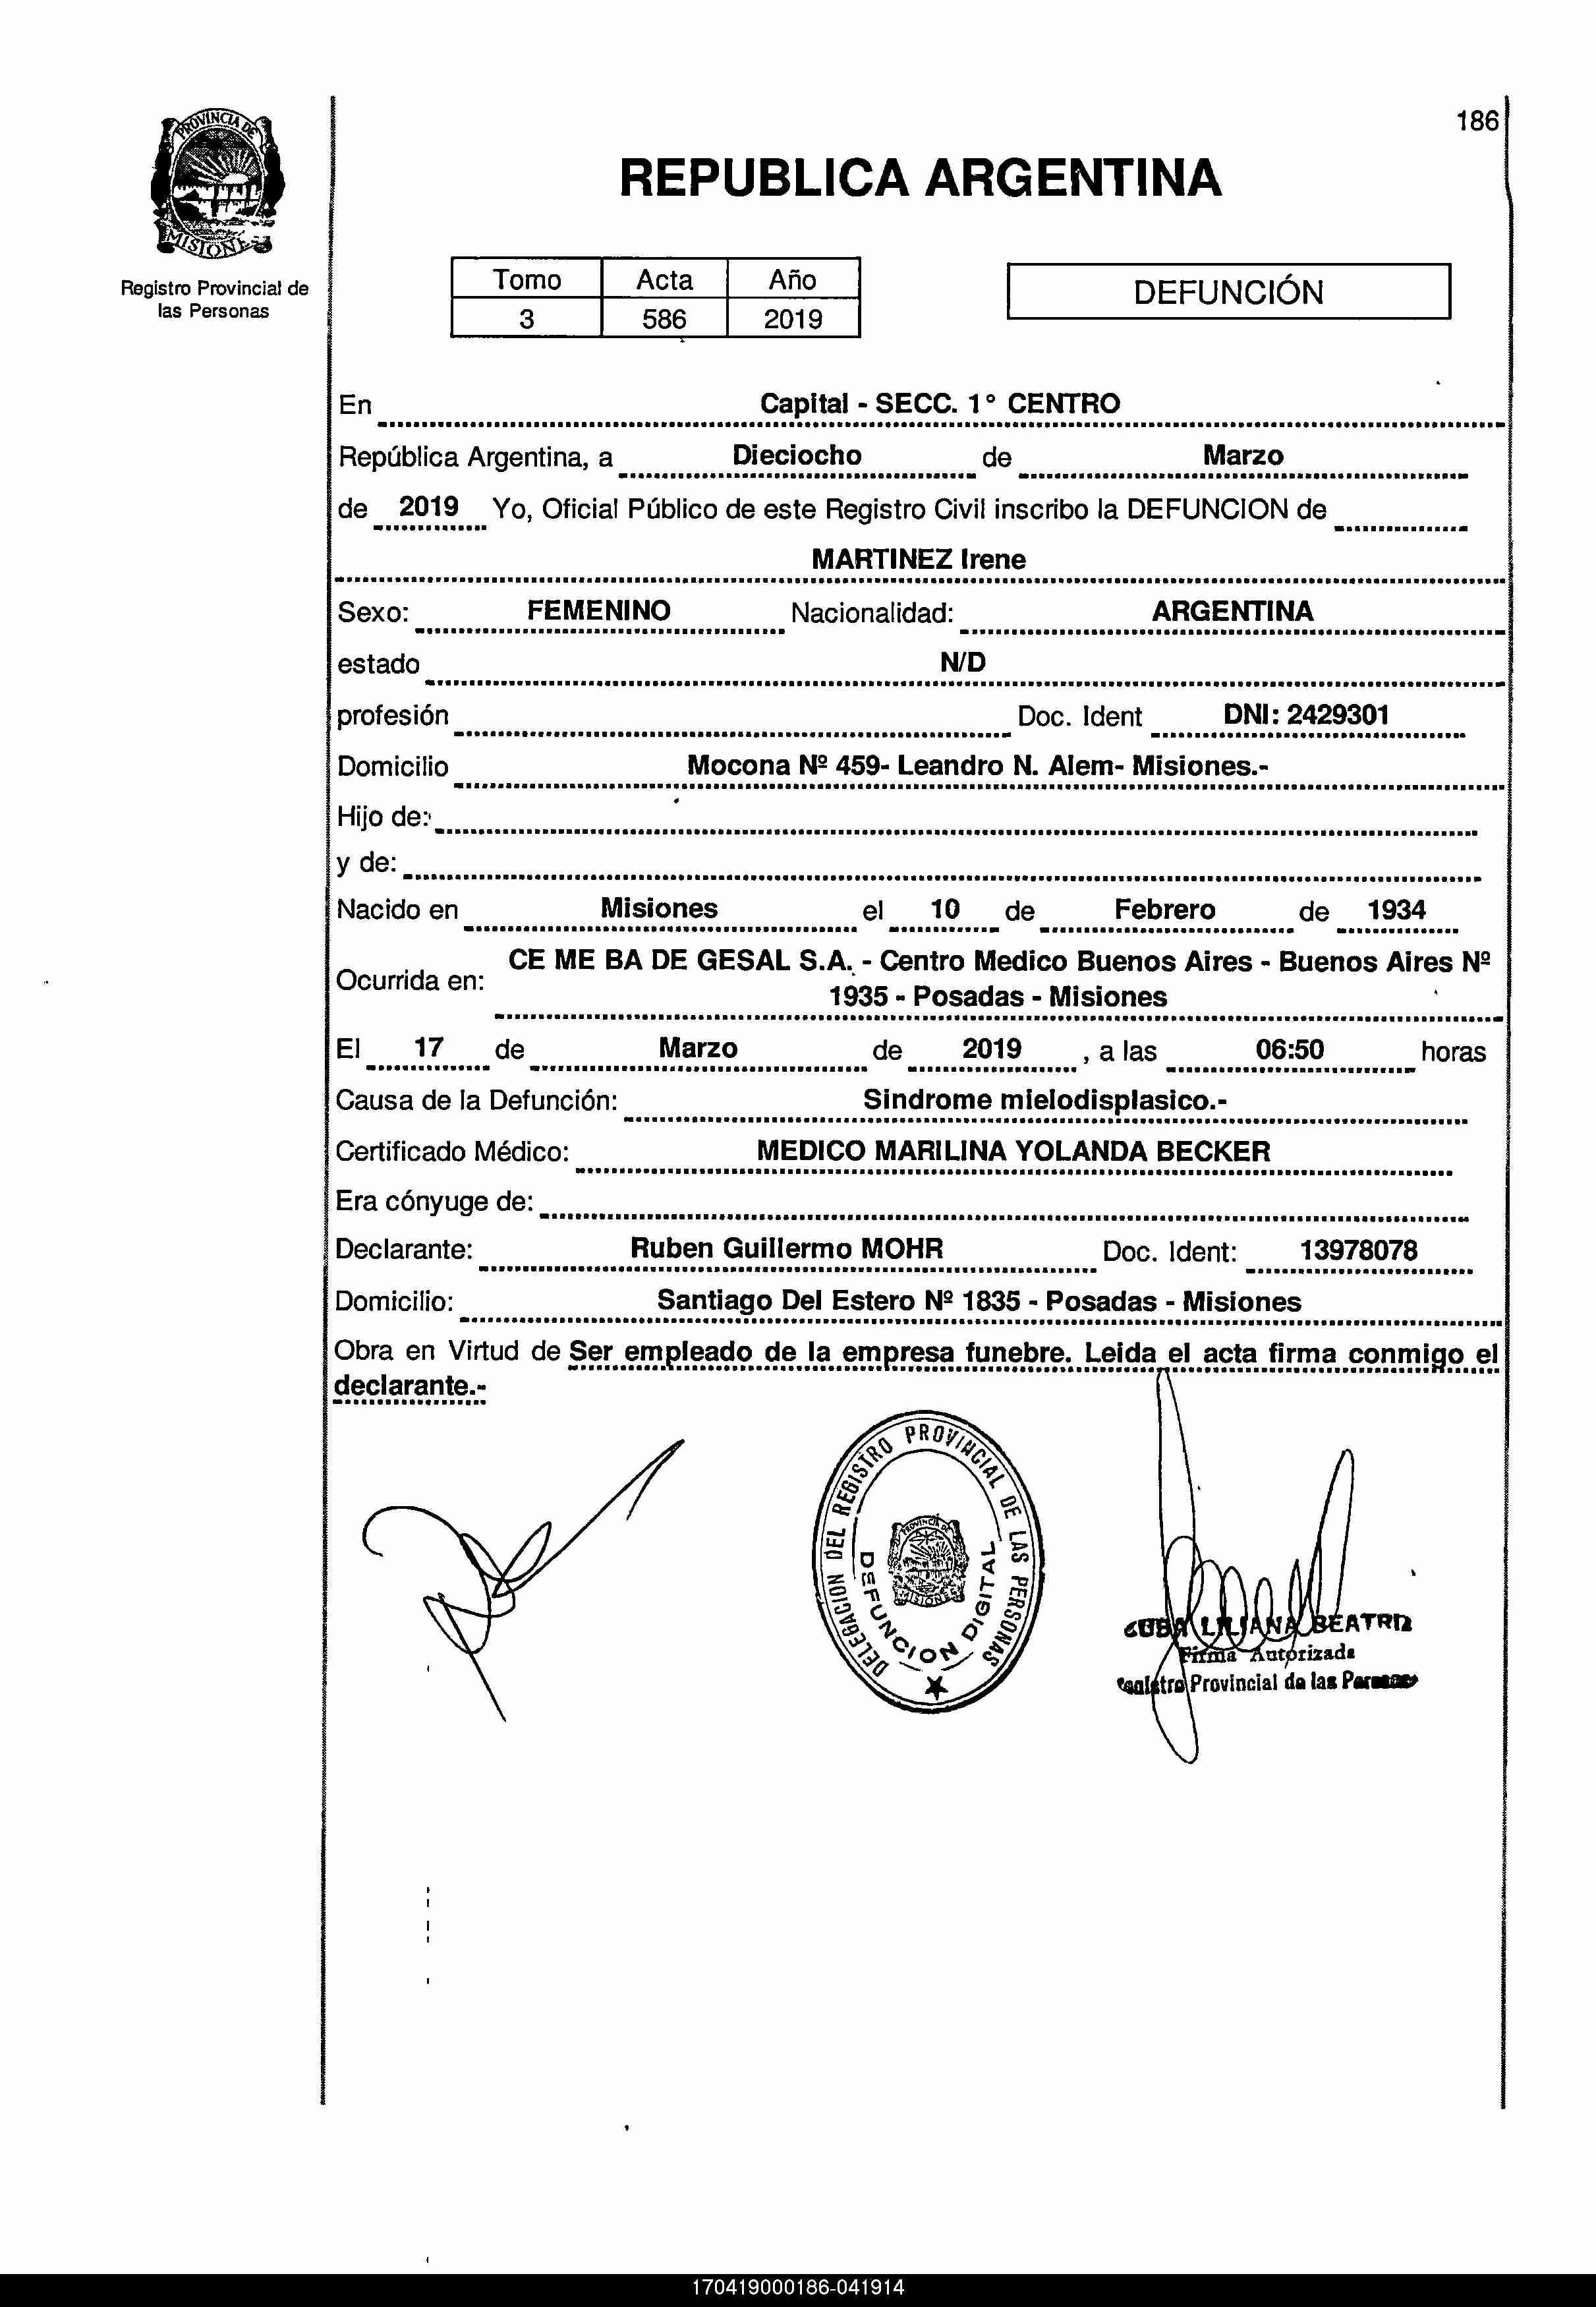 186
PROVINCIA DE
MISIONES
Registro Provincial de
las Personas
REPUBLICA ARGENTINA
Tomo Acta Año
3 586 2019
DEFUNCIÓN
En Capital - SECC. 1° CENTRO
República Argentina, a Dieciocho de Marzo
de 2019 Yo, Oficial Público de este Registro Civil inscribo la DEFUNCION de
MARTINEZ Irene
Sexo: FEMENINO Nacionalidad: ARGENTINA
estado N/D
profesión Doc. Ident DNI: 2429301
Domicilio Mocona Nº 459- Leandro N. Alem- Misiones.-
Hijo de:
y de:
Nacido en Misiones el 10 de Febrero de 1934
Ocurrida en: CE ME BA DE GESAL S.A. - Centro Medico Buenos Aires - Buenos Aires Nº
1935 - Posadas - Misiones
El 17 de Marzo de 2019 , a las 06:50 horas
Causa de la Defunción: Sindrome mielodisplasico.-
Certificado Médico: MEDICO MARILINA YOLANDA BECKER
Era cónyuge de:
Declarante: Ruben Guillermo MOHR Doc. Ident: 13978078
Domicilio: Santiago Del Estero Nº 1835 - Posadas - Misiones
Obra en Virtud de Ser empleado de la empresa funebre. Leida el acta firma conmigo el
declarante.-
DELEGACION DEL REGISTRO PROVINCIAL DE LAS PERSONAS
PROVINCIA DE
MISIONES
DEFUNCION DIGITAL
LILIANA BEATRIZ
Firma Autorizada
Provincial de las Personas
170419000186-041914